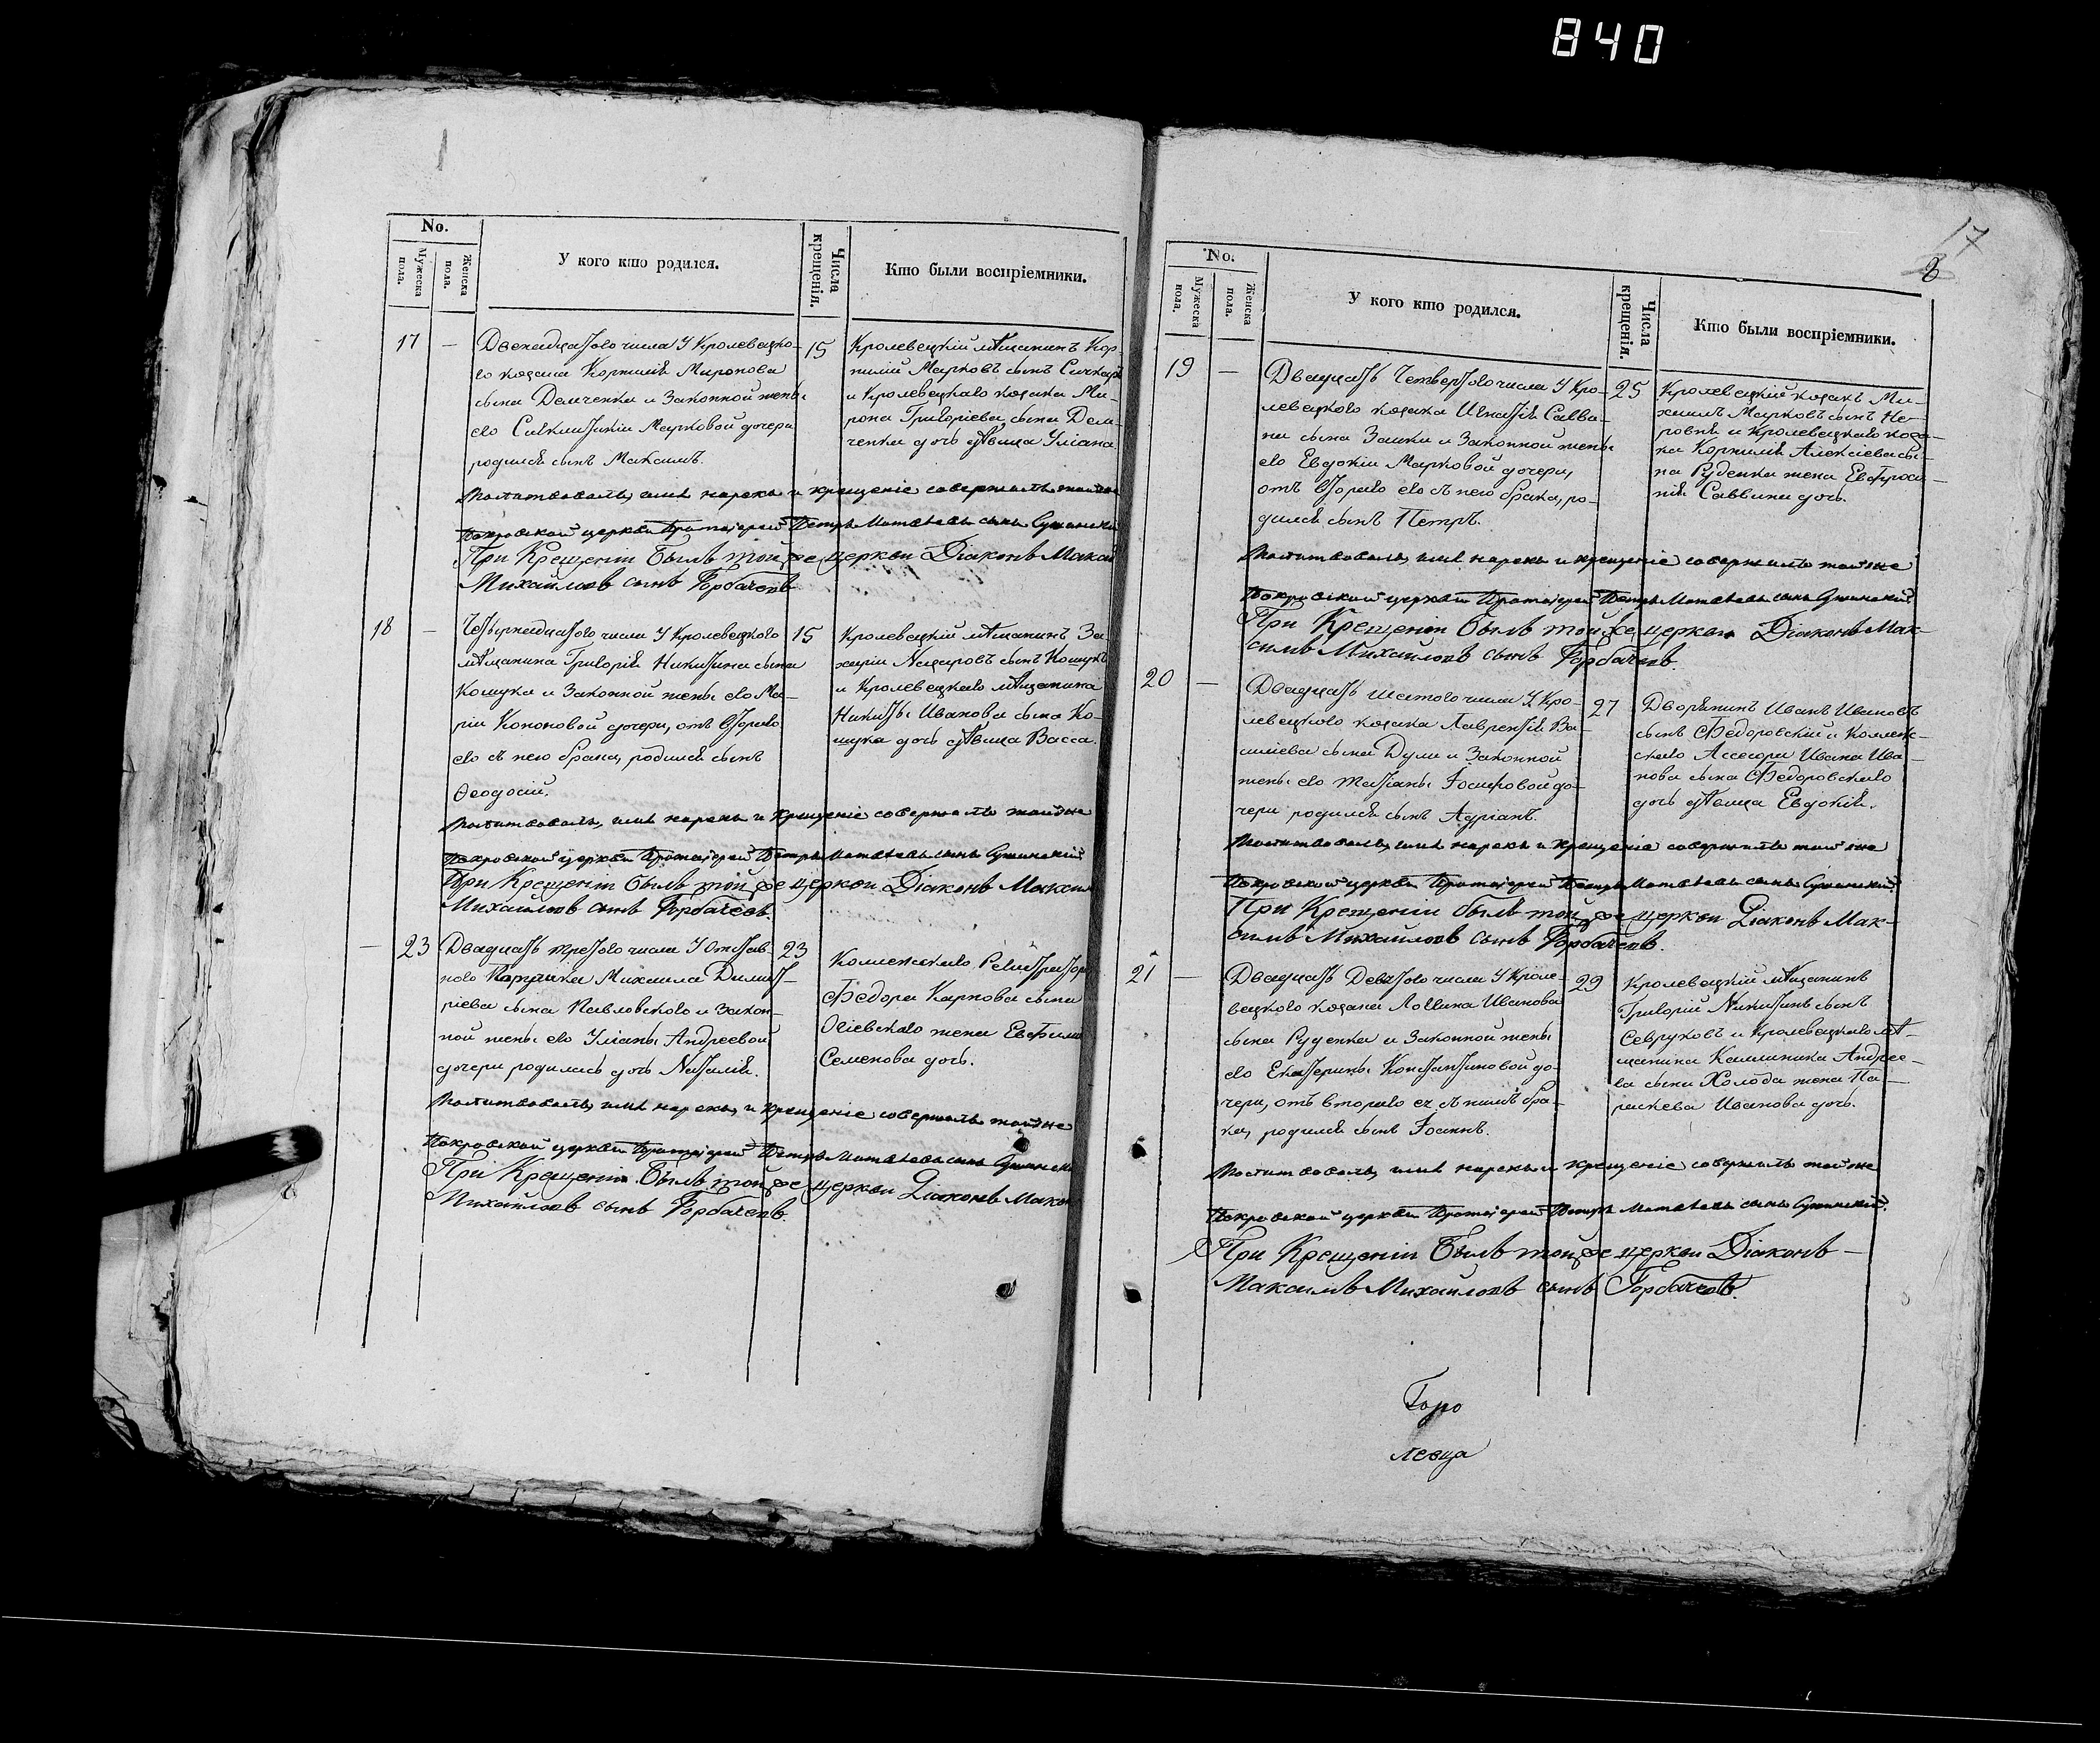 840
No.
Мужеска пола.
Женска пола.
У кого кто родился.
Числа крещенія.
Кто были воспріемники.
17 —
Двенадцатого числа У Кролевецко-
го козака Корнилія Миронова
сына Демченка и Законной жены
его Сигклитикіи Марковой дочери
родился сынъ Максимъ.
15
Кролевецкій мѣщанинъ Кор-
нилій Марковъ сынъ
и Кролевецкаго козака Ми-
рона Григоріева сына Дем-
ченка дочь дѣвица Уліана
Молитвовалъ, имя нарекъ и крещеніе совершилъ тойже
Покровской церкви Протоіерей Петръ Матвѣевъ сынъ
При Крещеніи былъ тойже церкви Діаконъ Макси
Михайловъ сынъ Горбачевъ
18 —
Четырнадцатого числа У Кролевецкого
мѣщанина Григорія Никитина сына
Кошука и Законной жены его Ма-
ріи Кононовой дочери, отъ втораго
его съ нею брака, родился сынъ
Ѳеодосій.
15
Кролевецкій мѣщанинъ За-
харій Назаровъ сынъ Кошукъ
и Кролевецкаго мѣщанина
Никиты Иванова сына Ко-
шука дочь дѣвица Васса.
Молитвовалъ, имя нарекъ и крещеніе совершилъ тойже
Покровской церкви Протоіерей Петръ Матвѣевъ сынъ
При Крещеніи былъ тойже церкви Діаконъ Макси
Михайловъ сынъ Горбачевъ.
— 23
Двадцать третого числа У Отстав-
ного Поручика Михаила Димит-
ріева сына Павловского и Закон-
ной жены его Уліаны Андреевой
дочери родилась дочь Наталія.
23
Коллежскаго Регистратора
Федора Карпова сына
Огіевскаго жена Евфимія
Семенова дочь.
Молитвовалъ, имя нарекъ, и крещеніе совершилъ тойже
Покровской церкви Протоіерей Петръ Матвѣевъ сынъ
При Крещеніи былъ тойже церкви Діаконъ Макси
Михайловъ сынъ Горбачевъ.
17
8
No.
Мужеска пола.
Женска пола.
У кого кто родился.
Числа крещенія.
Кто были воспріемники.
19 —
Двадцать Четвертого числа У Кро-
левецкого козака Игнатія Савви-
на сына Зашки и Законной жены
его Евдокіи Марковой дочери,
отъ втораго его съ нею брака, ро-
дился сынъ Петръ.
25
Кролевецкій козакъ Ми-
хаилъ Марковъ сынъ Не-
ровня и Кролевецкаго коза-
ка Корнилія Алексіева сы-
на Руденка жена Евфроси-
нія Саввина дочь.
Молитвовалъ, имя нарекъ и крещеніе совершилъ тойже
Покровской церкви Протоіерей Петръ Матвѣевъ сынъ
При Крещеніи былъ тойже церкви Діаконъ Мак-
симъ Михайловъ сынъ Горбачевъ.
20 —
Двадцать шестого числа У Кро-
левецкого козака Лаврентія Ва-
силіева сына Дули и Законной
жены его Татіаны Іосифовой до-
чери родился сынъ Адріанъ.
27
Дворянинъ Иванъ Ивановъ
сынъ Федоровскій и Коллеж-
скаго Ассесора Ивана Ива-
нова сына Федоровскаго
дочь дѣвица Евдокія.
Молитвовалъ, имя нарекъ и крещеніе совершилъ тойже
Покровской церкви Протоіерей Петръ Матвѣевъ сынъ
При Крещеніи былъ тойже церкви Діаконъ Мак-
симъ Михайловъ сынъ Горбачевъ.
21 —
Двадцать Девятого числа У Кроле-
вецкого козака Логгина Иванова
сына Руденка и Законной жены
его Екатерины Константиновой до-
чери, отъ второго ея съ нимъ бра-
ка, родился сынъ Іоаннъ.
29
Кролевецкій мѣщанинъ
Григорій Никитинъ сынъ
Севруковъ и Кролевецкаго мѣ-
щанина Каллиника Андрее-
ва сына Холода жена Па-
раскева Иванова дочь.
Молитвовалъ, имя нарекъ и крещеніе совершилъ тойже
Покровской церкви Протоіерей Петръ Матвѣевъ сынъ
При Крещеніи былъ тойже церкви Діаконъ —
Максимъ Михайловъ сынъ Горбачевъ.
Горо
левца